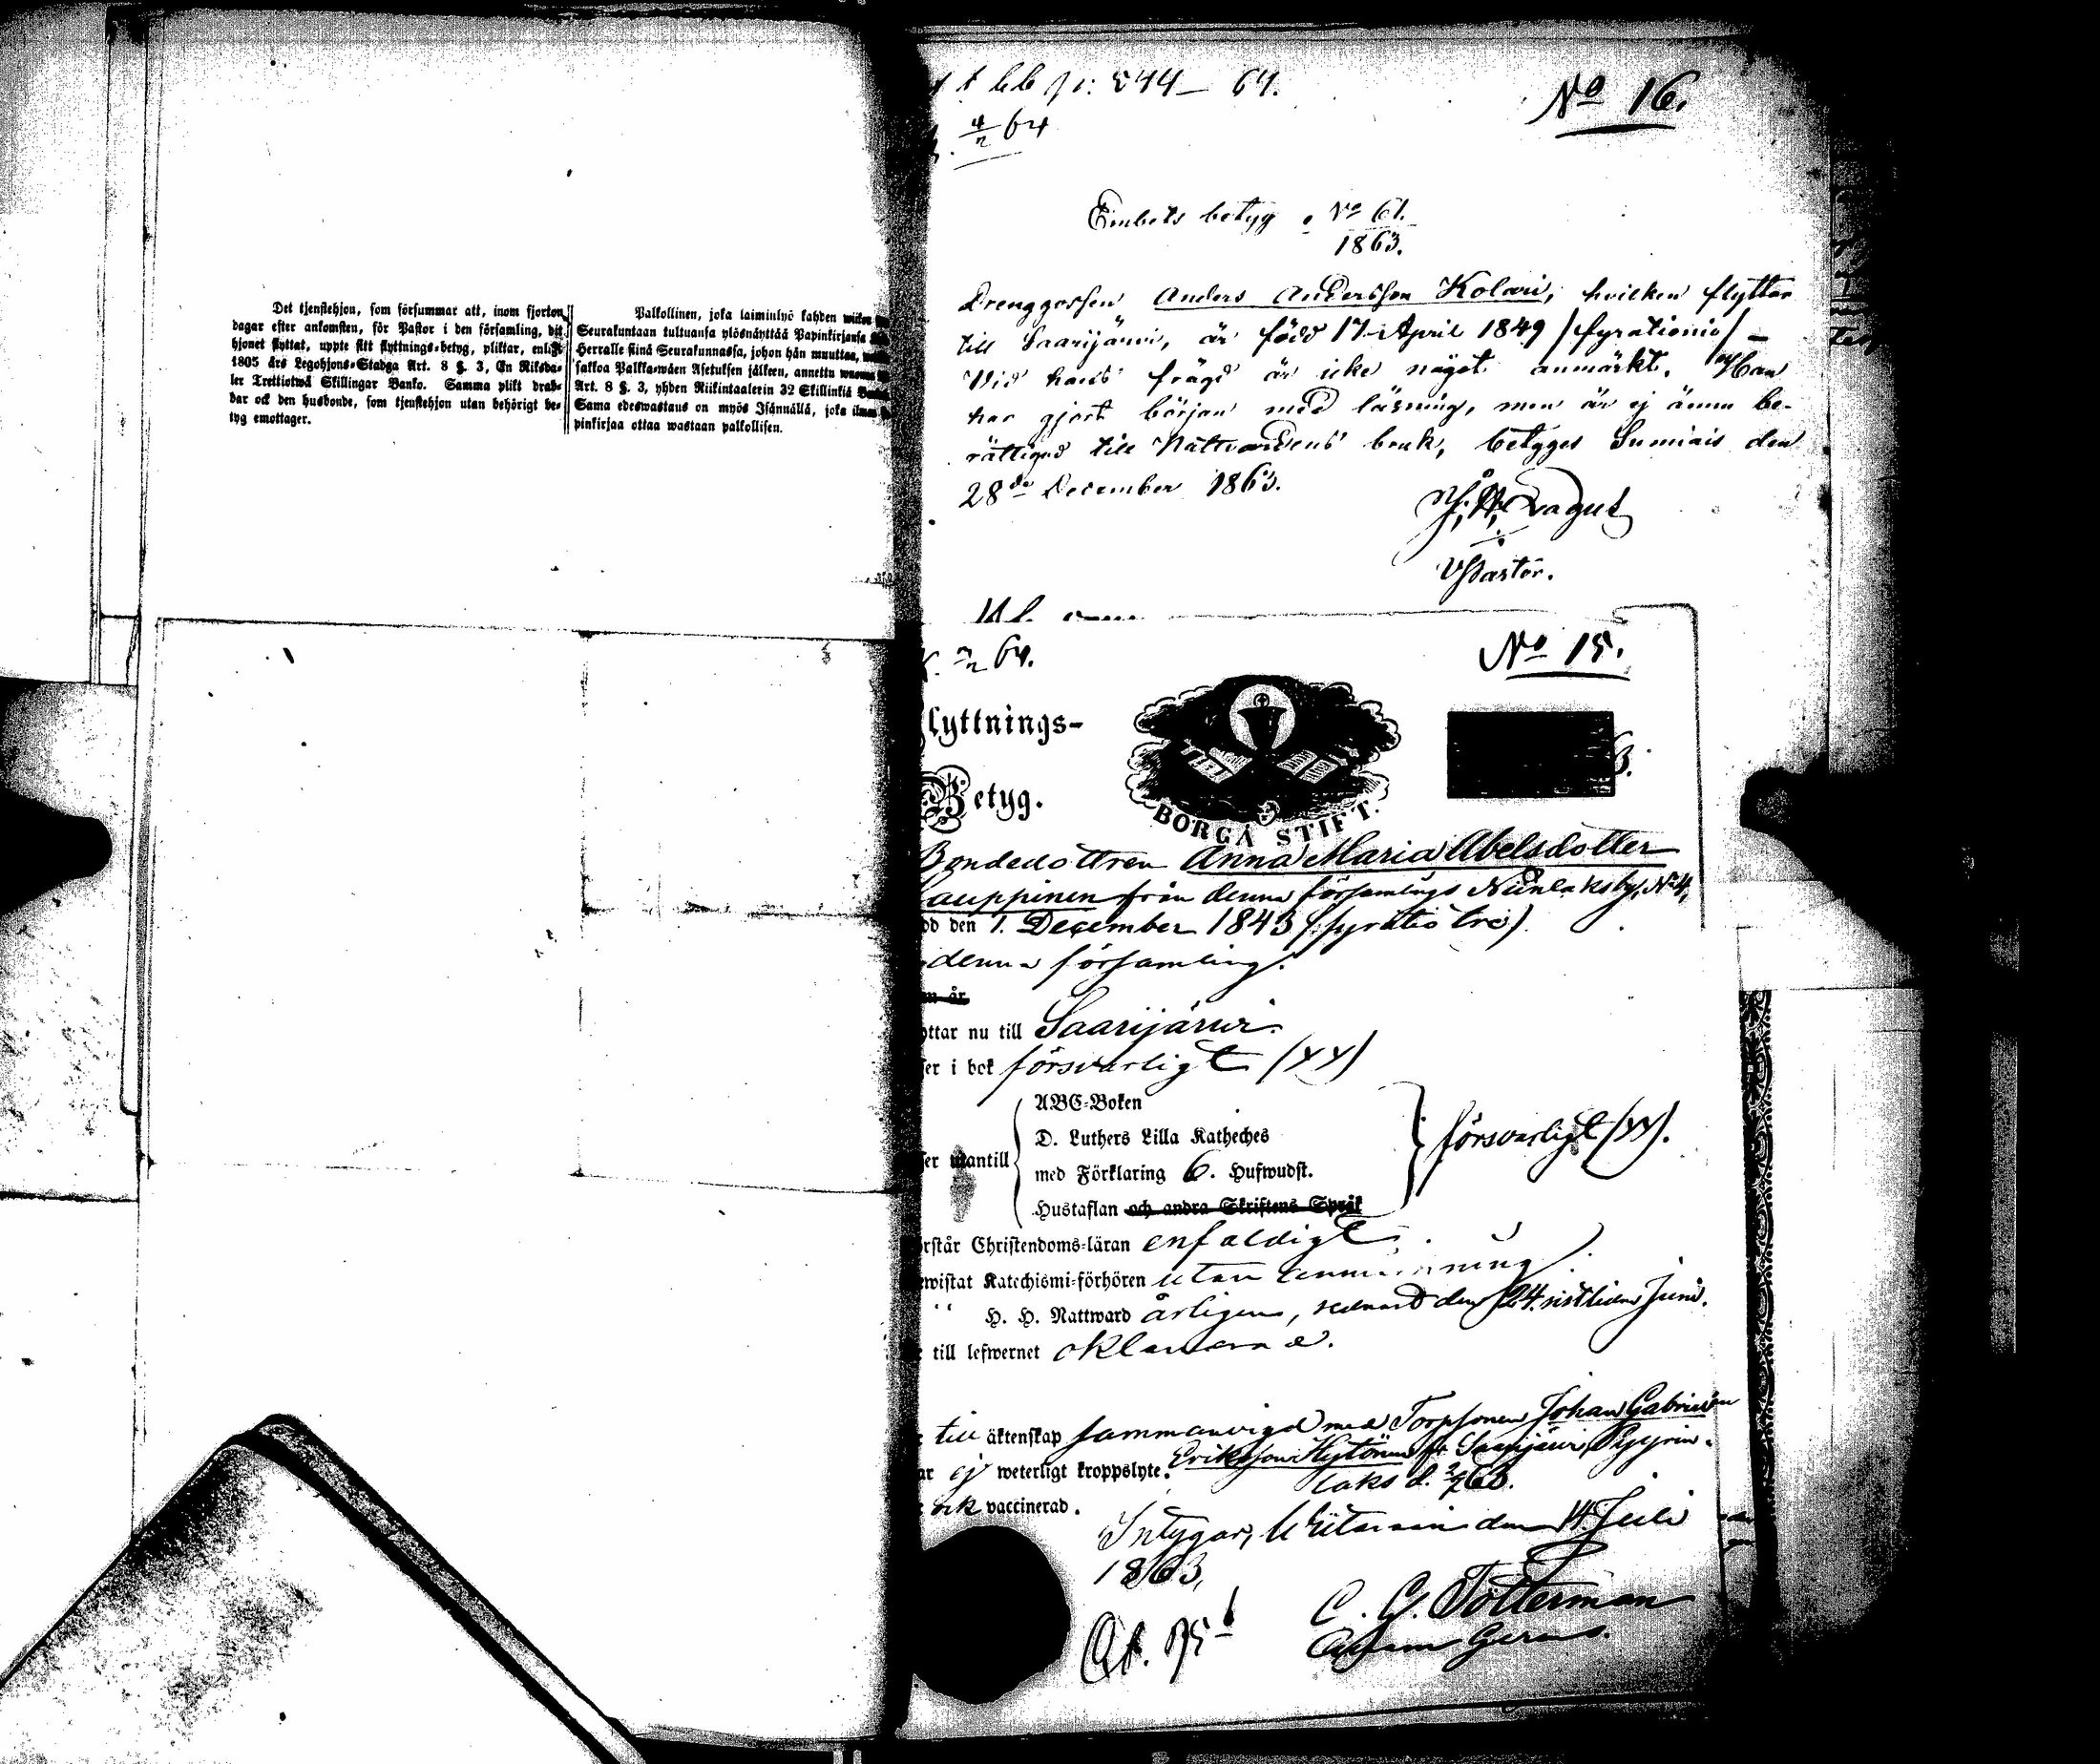 Det tjenstehjon, som försummar att, inom fjorton
dagar efter ankomsten, för Pastor i den församling, dit
hjonet flyttat, uppte sitt flyttnings-betyg, pliktar, enligt
1805 års Legohjons-Stadga Art. 8 §. 3, En Riksda-
ler Trettiotwå Skillingar Banko. Samma plikt drab-
bar ock den husbonde, som tjenstehjon utan behörigt be-
tyg emottager.
Palkollinen, joka laiminlyö kahden
Seurakuntaan tultuansa ylösnäyttää Papinkirjansa
Herralle siinä Seurakunnassa, johon hän muuttaa,
sakkoa Palkkawäen Asetuksen jälkeen, annettu
Art. 8 §. 3, yhden Riikintaalerin 32 Skillinkiä
Sama edeswastaus on myös Isännällä, joka ilman
pinkirjaa ottaa wastaan palkollisen.
544 — 64.
No 16.
4/2 64
Embets betyg No 61.
1863.
Drenggossen Anders Andersson Kolari, hvilken flyttar
till Saarijärvi, är född 17 April 1849 /fyrationio/ —
Vid hans frägd är icke något anmärkt. Han
har gjort början med läsning, men är ej ännu be-
rättigad till Nattvardens bruk, betygges Sumiais den
28de December 1863.
Lagus
VPastor.
64.
No 15.
lyttnings-
Betyg.
3.
BORGÅ STIFT.
Bondedottren Anna Maria Abelsdotter
auppinen från denna församlings Niinilaks by, No 4,
dd den 1. December 1843 (fyratio tre)
denna församling.
m år
ttar nu till Saarijärvi.
ser i bok försvarligt (YY)
ser utantill
ABC-Boken
D. Luthers Lilla Katheches
med Förklaring 6. Hufwudst.
Hustaflan och andra Skriftens Språk
försvarligt (YY).
rstår Christendoms-läran enfaldigt.
ewistat Katechismi-förhören utan anmärkning.
" H. H. Nattward årligen, sednast den 24. sistliden Juni.
till lefwernet oklandrad.
till äktenskap sammanvigd med Torpsonen Johan Gabriel
Eriksson Hytönen fr. Saarijärvi,
ar ej weterligt kroppslyte.
laks d.
ock vaccinerad.
Intygar, Wiitasaari den 14 Juli
1863,
C. G. Tötterman